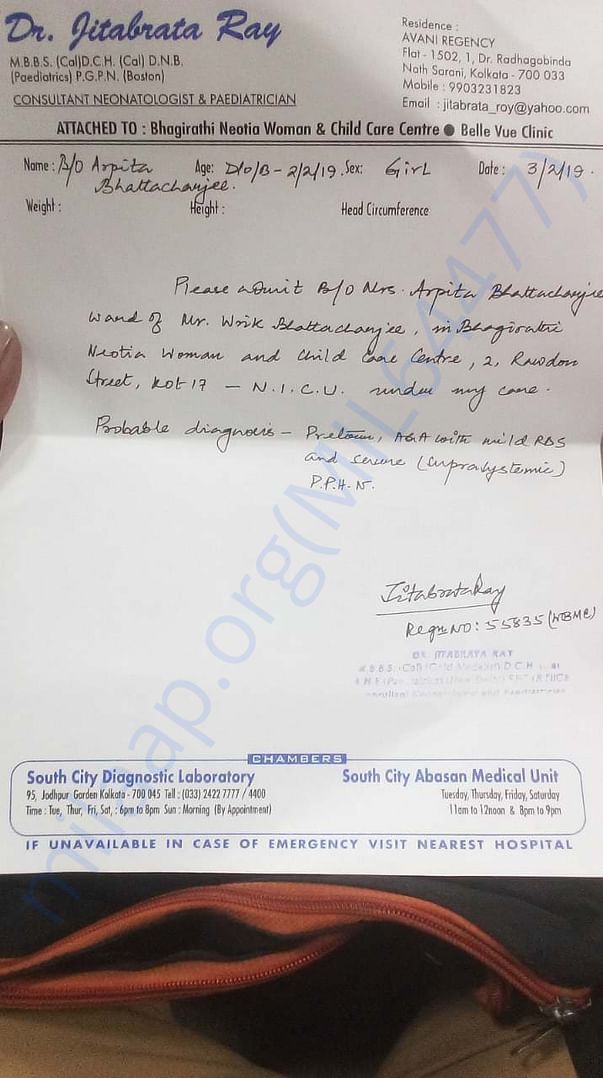 Dr. Jitabrata Ray
M.B.B.S. (Cal)D.C.H. (Cal) D.N.B.
(Paediatrics) P.G.P.N. (Boston)
CONSULTANT NEONATOLOGIST & PAEDIATRICIAN
Residence :
AVANI REGENCY
Flat - 1502, 1, Dr. Radhagobinda
Nath Sarani, Kolkata - 700 033
Mobile : 9903231823
Email : jitabrata_roy@yahoo.com
ATTACHED TO : Bhagirathi Neotia Woman & Child Care Centre ● Belle Vue Clinic
Name : B/O Arpita Age: D/O/B - 2/2/19. Sex: GirL Date : 3/2/19.
Bhattacharjee.
Weight : Height : Head Circumference
Please admit B/O Mrs. Arpita Bhattacharjee
ward of Mr. Wrik Bhattacharjee, in Bhagirathi
Neotia Woman and Child Care Centre, 2, Rawdon
Street, Kol 17 - N.I.C.U. under my care.
Probable diagnosis - Preterm, AGA with mild RDS
and severe (suprasystemic)
P.P.H.N.
Jitabrata Ray
Regn NO: 55835 (WBMC)
DR. JITABRATA RAY
CHAMBERS
South City Diagnostic Laboratory
95, Jodhpur Garden Kolkata - 700 045 Tell : (033) 2422 7777 / 4400
Time : Tue, Thur, Fri, Sat, : 6pm to 8pm Sun : Morning (By Appointment)
South City Abasan Medical Unit
Tuesday, Thursday, Friday, Saturday
11am to 12noon & 8pm to 9pm
IF UNAVAILABLE IN CASE OF EMERGENCY VISIT NEAREST HOSPITAL
milaap.org(MIL644777)